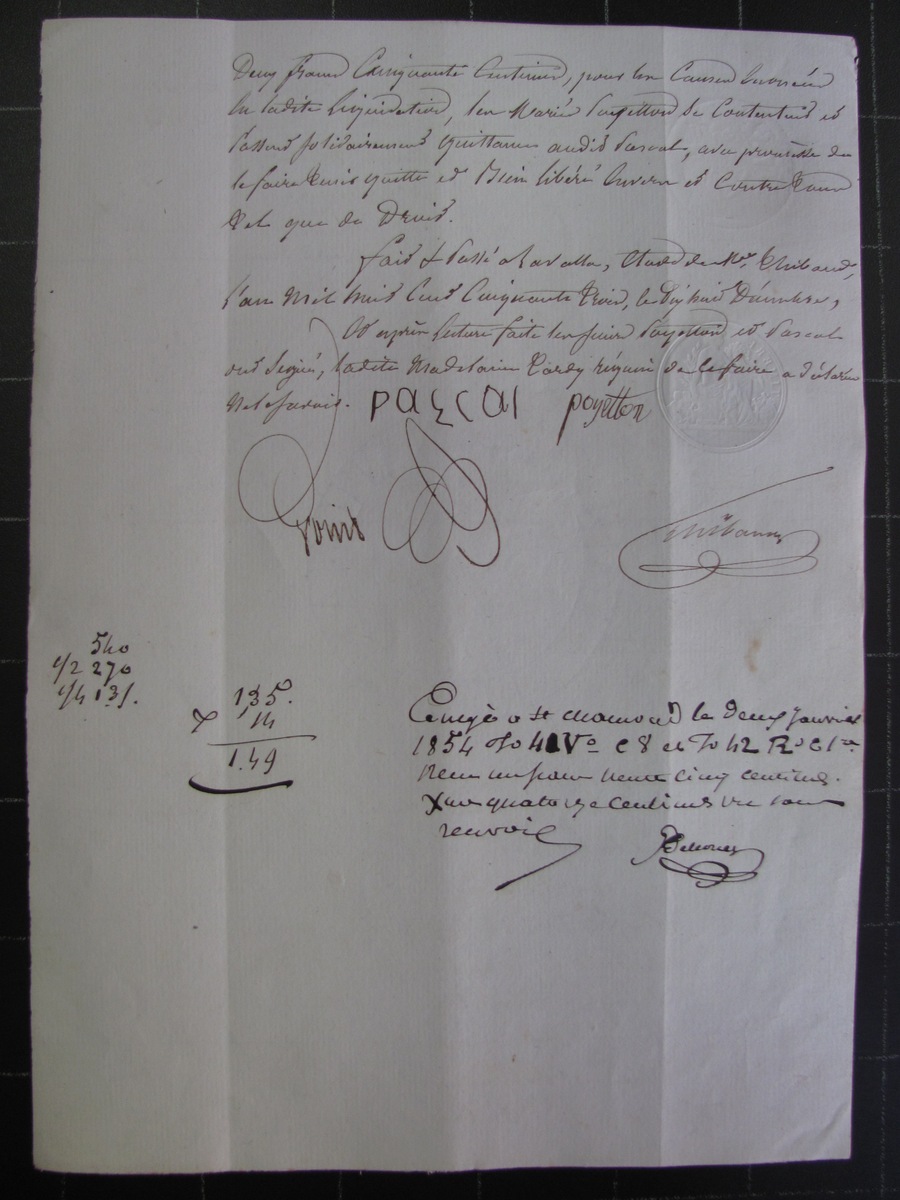 Deux francs Cinquante Centimes, pour les Causes énoncées
en ladite liquidation, les Mariés Poyetton se Contentent et
Passent solidairement quittance audit Pascal, avec promesse de
le faire tenir quitte et Bien libéré Envers et Contre Tous
Tels que de Droit.
Fait & Passé a Lavalla, Etude de Me. Thibaud,
L'an Mil huit Cent Cinquante Trois, le Dix huit Décembre,
Et après lecture faite les sieurs Poyetton et Pascal
ont Signé, ladite Madelaine Tardy réquise de le faire a déclaré
Ne le Savoir. PASCAL poyetton
Thibaud
540
1/2 270
1/4 135.
135.
14
1.49
Enregé a St chamond le deux Janvier
1854 fo 41 Vo C 8 et fo 42 Ro C 1re
Reçu un franc trente cinq centimes.
Xme quatorze centimes un sans
renvoi